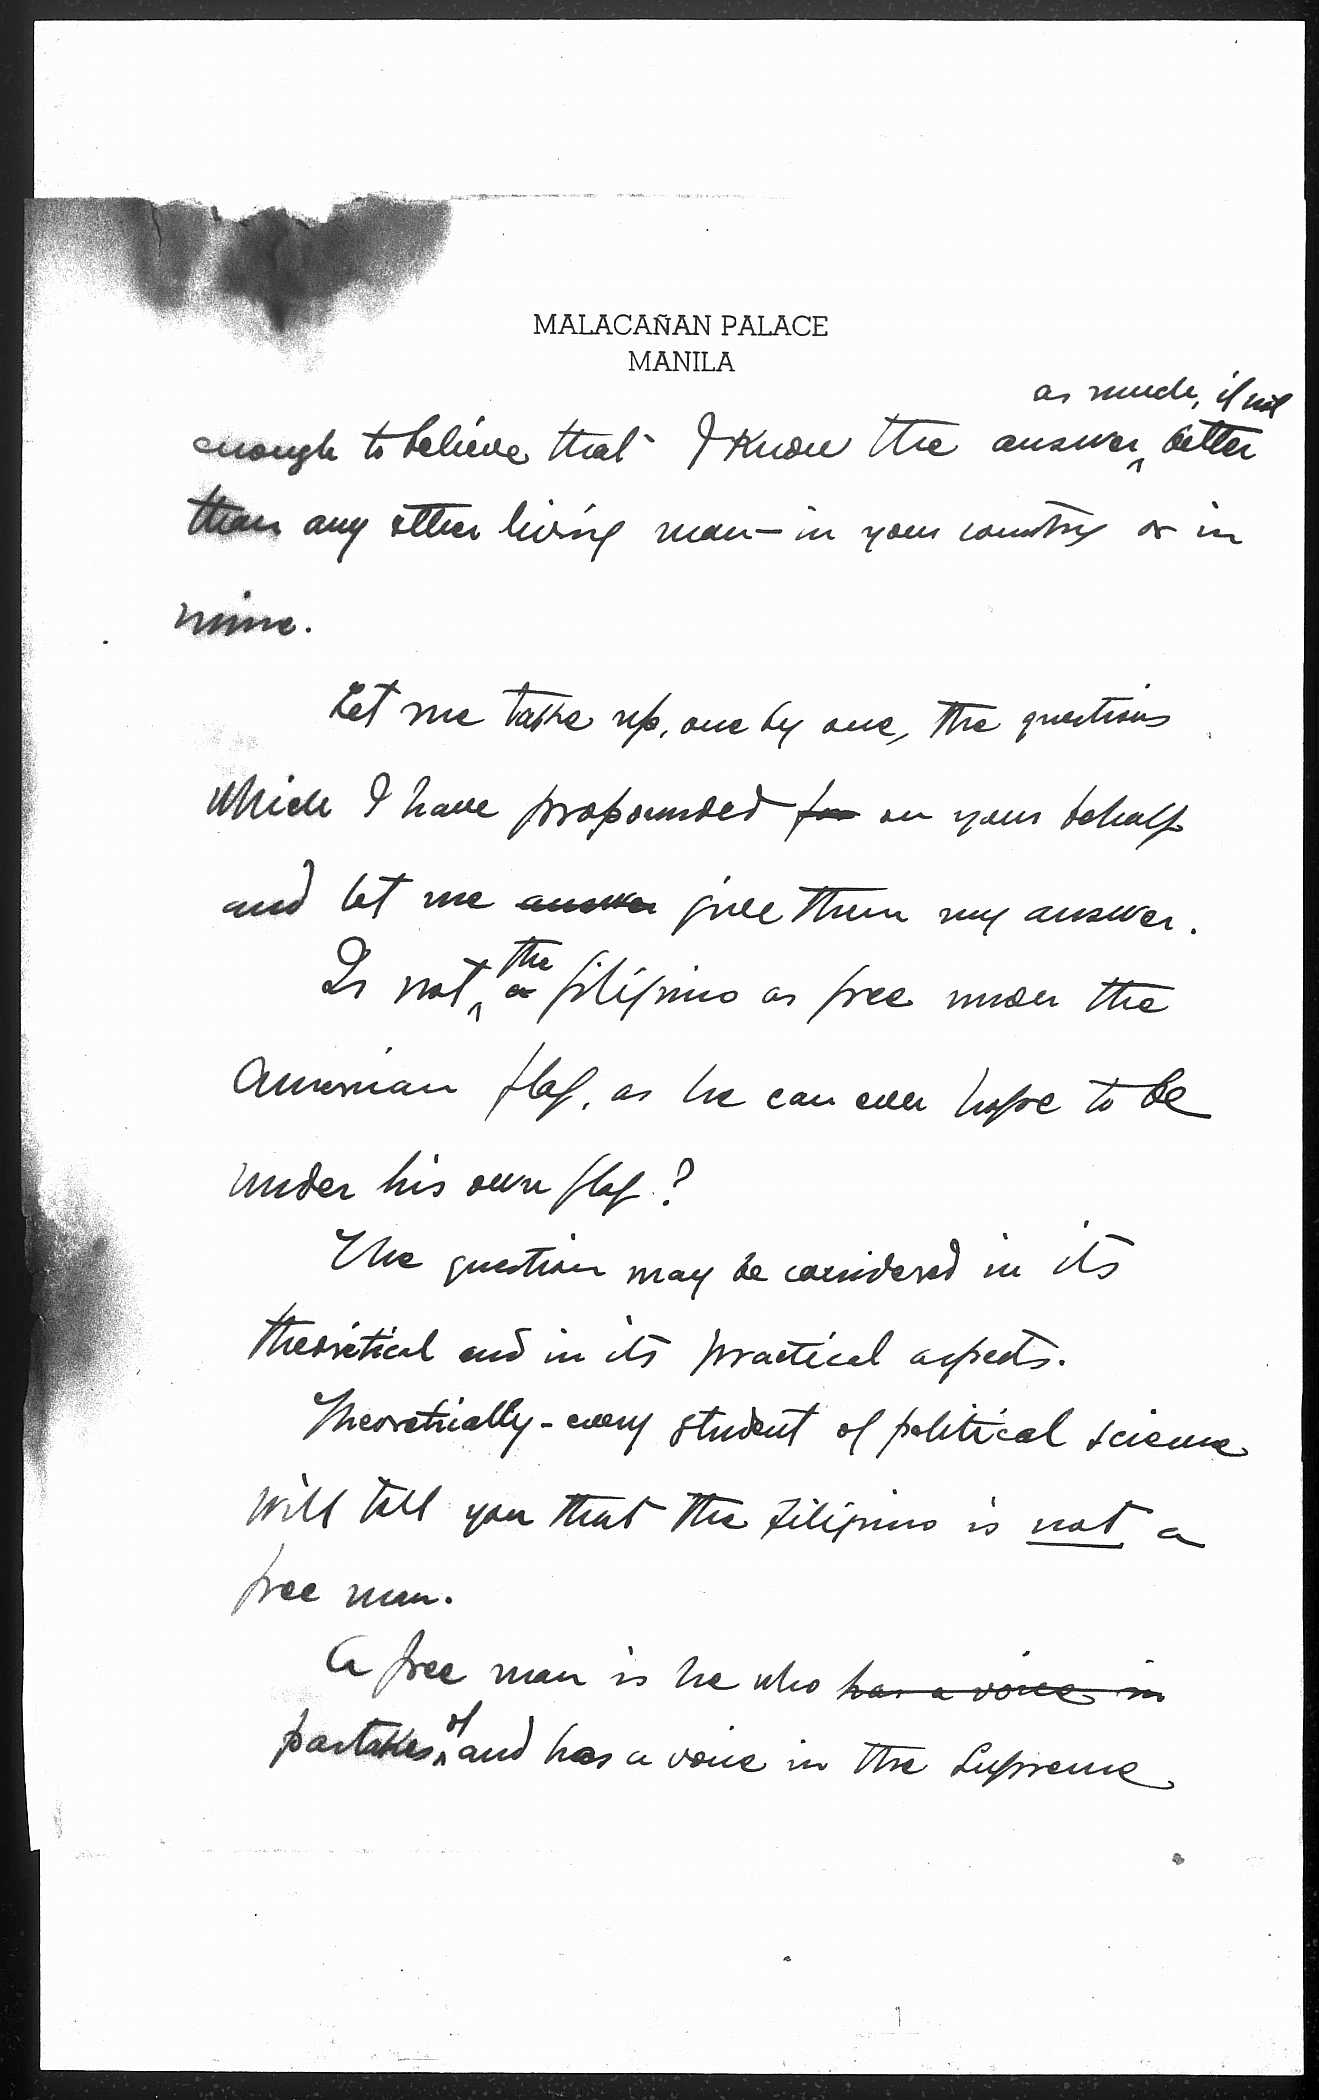 MALACAÑAN PALACE
MANILA
as much, if not
enough to believe that I know the answer, better
than any other living man — in your country or in
mine.
Let me take up, one by one, the questions
which I have propounded for on your behalf
and let me answer give them my answer.
the
Is not a filipino as free under the
American flag, as he can ever hope to be
under his own flag?
The question may be considered in its
theoretical and in its practical aspects.
Theoretically - every student of political science
will tell you that the Filipino is not a
free man.
A free man is he who has a voice in
of
partakes and has a voice in the supreme